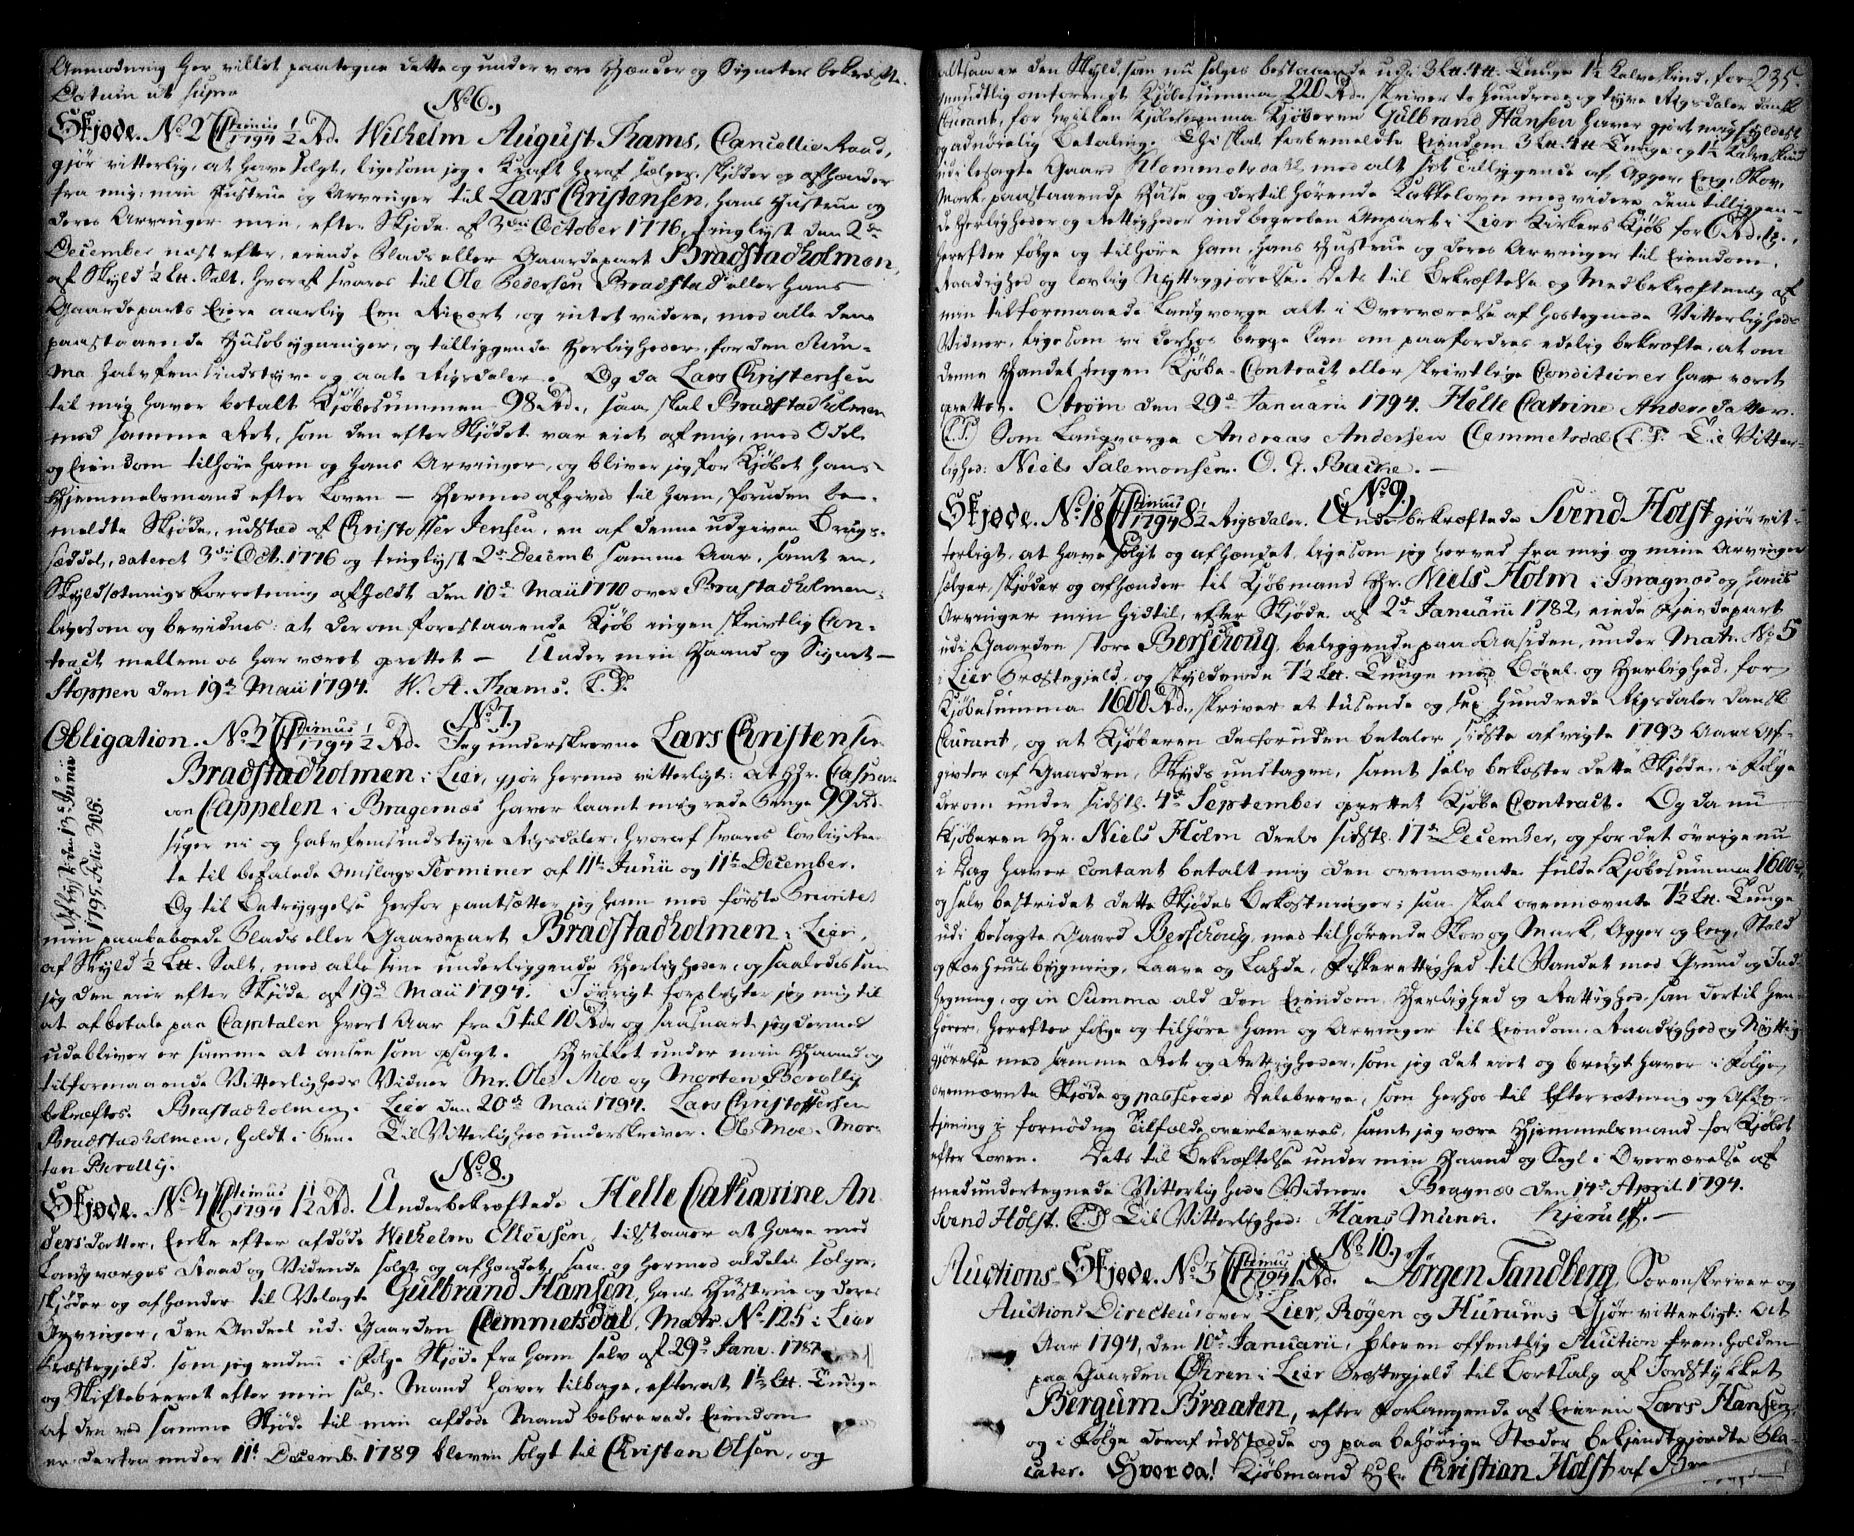 Anmodning her villet paategne dette og under vore Hænder og Signeter bekræfte.
Datum ut supra
No 6.
Skjøde. No 2 Cl: Primus 1794 1/2 Rd. Wilhelm August Thams, Cancellie Raad,
gjør vitterlig, at have solgt, ligesom jeg i Kraft heraf sælger, skjøder og afhænder
fra mig, min Hustrue og Arvinger til Lars Christensen, hans Hustrue og
deres Arvinger min, efter Skjøde af 3die October 1776, tinglyst den 2de
December næst efter, eiende Plads eller Gaardepart Bradstadholmen,
af Skyld 1/2 Lt. Salt, hvoraf svares til Ole Pedersen Bradstad eller hans
Gaardeparts Eiere aarlig Een Rixort og intet videre, med alle dens
paastaaende Huusebygninger, og tilliggende Herligheder, for den Sum-
ma halvfemsindstyve og aatte Rigsdaler. Og da Lars Christensen
til mig haver betalt Kjøbesummen 98 Rd., saa skal Bradstadholmen
med samme Ret, som den efter Skjødet var eiet af mig, med Odel
og Eiendom tilhøre ham og hans Arvinger, og bliver jeg for Kjøbet hans
Hjemmelsmand efter Loven — Hermed afgives til ham, foruden be-
meldte Skjøde, udstæd af Christoffer Jensen, en af denne udgiven Brugs-
sæddel, dateret 3die Oct. 1776 og tinglyst 2de Decemb samme Aar, samt en
Skyldsætnings Forretning afholdt den 10de Maii 1770 over Brastadholmen,
ligesom og bevidnes: at der om forestaaende Kjøb ingen skrivtlig Con-
tract mellem os har været oprettet — Under min Haand og Signet —
Stoppen den 19de Maii 1794. W. A. Thams. L. S.
No 7.
Obligation. No 2 Cl: Primus 1794 1/2 Rd. Jeg underskrevne Lars Christensen
Bradstadholmen i Lier, gjør hermed vitterligt: At Hr. Casper
von Cappelen i Bragernæs haver laant mig rede Penge 99 Rd.
siger ni og halvfemsindstyve Rigsdaler, hvoraf svares lovlig Ren-
te til befalede Omslags Terminer af 11te Junii og 11te December.
Og til Betryggelse herfor pantsætter jeg ham med første Prioritet
min paaboende Plads eller Gaardepart Bradstadholmen i Lier,
af Skyld 1/2 Lt. Salt, med alle sine underliggende Herligheder, og saaledes som
jeg den eier efter Skjøde af 19de Maii 1794. I øvrigt forpligter jeg mig til
at afbetale paa Capitalen hvert Aar fra 5 til 10 Rdr og saasnart jeg dermed
udebliver er samme at ansee som opsagt. Hvilket under min Haand og
tilformaaende Vitterligheds Vidner Mr. Ole Moe og Morten Berallig
bekræftes. Brastadholmen i Lier den 20de Maii 1794. Lars Christoffersen
Bradstadholmen, holdt i Pen. Til Vitterlighed underskriver. Ole Moe. Mor-
ten Berallig.
Aflyst den 13de Junii
1795. Folio 305.
No 8.
Skjøde. No 4 Cl: Primus 1794 1 1/2 Rd. Underbekræftede Helle Catharine An-
ders datter, Enke efter afdøde Wilhelm Moessen, tilstaaer at have med
Laugværges Raad og Vidende solgt og afhændet, saa og hermed aldeles sælger,
skjøder og afhænder til Velagte Gulbrand Hansen, hans Hustrue og deres
Arvinger, den Andeel udi Gaarden Clemmetsdal, Matr. No 125 i Lier
Præstegjeld som jeg endnu i Følge Skjøde fra ham selv af 29de Janr. 1787
og Skiftebrevet efter min sal. Mand haver tilbage, efterat 1 1/2 Lt. Tunge
af den ved samme Skjøde til min afdøde Mand bebrevede Eiendom
er dertra under 11te Decemb. 1789 bleven solgt til Christen Olsen, og
235.
altsaa er den Skyld, som nu sælges bestaaende udi 3 Lt. 4 tt. Tunge 1 1/2 Kalveskind, for
mundtlig omforenet Kjøbesumma 220 Rd., skriver to Hundrede og tyve Rigsdaler dansk
Courant, for hvilken Kjøbesumma Kjøberen Gulbrand Hansen haver gjort mig fyldest
og adnørelig Betaling. Thi skal forbemeldte Eiendom 3 Lt. 4 tt Tunge og 1 1/2 Kalveskind
udi besagte Gaard Klemmetsdal, med alt sit tilliggende af Agger, Eng, Skov,
Mark, paastaaende Huuse og dertil hørende Kakkelovn med videre, dem tilliggen-
de Herligheder og Rettigheder indbegreben Anpart i Lier Kirkes Kjøb for 6 Rd.,
herefter følge og tilhøre ham, hans Hustrue og deres Arvinger til Eiendom,
Raadighed og lovlig Nyttiggjørelse. Dets til Bekræftelse og Medbekræftning af
min tilformaaede Laugværge alt i Overværelse af hostegnede Vitterligheds
Vidner, ligesom vi derhos begge kan om paafordres edelig bekræfte, at om
denne Handel ingen Kjøbe-Contract eller skrivtlige Conditioner har været
oprettet. Strøm den 29de Januarii 1794. Helle Catrine Andersdatter.
(L.S.) Som Laugværge Andreas Andersen Clemmetsdal (L.S.) Til Vitter-
lighed: Niels Salemonsen. O. G. Bache. —
No 9.
Skjøde. No 18 Cl: Primus 1794 8 1/2 Rigsdaler. Underbekræftede Svend Holst gjør vit-
terligt, at have solgt og afhændet, ligesom jeg herved fra mig og mine Arvinger
sælger, skjøder og afhænder til Kjøbmand Hr. Niels Holm i Bragnæs og hans
Arvinger min hidtil, efter Skjøde af 2de Januarii 1782, eiende Eiendepart
udi Gaarden store Berschoug, beliggende paa Aasiden, under Matr. No 5
i Lier Præstegjeld, og skyldende 7 1/2 Lt. Tunge med Bøxel og Herlighed, for
Kjøbesumma 1600 Rd., skriver et tusende og sex Hundrede Rigsdaler dansk
Courant, og at Kjøberen desforuden betaler sidste afvigte 1793 Aars Af-
givter af Gaarden, Skyds undtagen, samt selv bekoster dette Skjøde, i Følge
derom under sidstl. 4de September oprettet Kjøbe Contract. Og da nu
Kjøberen Hr. Niels Holm deels sidstl. 17de December, og for det øvrige nu
i Dag haver contant betalt mig den ovennævnte fulde Kjøbesumma 1600 Rd,
og selv bestridet dette Skjødes Bekostninger; saa skal ovennævnte 7 1/2 Lt. Tunge
udi besagte Gaard Berschoug, med tilhørende Skov og Mark, Agger og Eng, Stald
og Fæehuusbygning, Laave og Ladde, Fiskerettighed til Vandet med Grund og Ind-
hegning, og in Summa ald den Eiendom, Herlighed og Rettighed, som dertil hen-
hører, herefter følge og tilhøre ham og Arvinger til Eiendom, Raadighed og Nyttig-
gjørelse med samme Ret og Rettigheder, som jeg det eiet og brugt haver i Følge
ovennævnte Skjøde og passerede Delebreve, som herhos til Efterretning og Afbe-
tjening i fornødne Tilfælde overleveres, samt jeg være Hjemmelsmand for Kjøbet
efter Loven. Dets til Bekræftelse under min Haand og Segl i Overværelse af
medundertegnede Vitterligheds Vidner. Bragnæs den 14de April 1794.
Svend Holst. L. S. Til Vitterlighed: Hans Munk. Kjerulff. —
No 10.
Auctions-Skjøde. No 3 Cl: Primus 1794 1 Rd. Jørgen Tandberg, Sorenskriver og
Auctions Directeur over Lier, Røgen og Hurum; Gjør vitterligt: At
Aar 1794, den 10de Januarii, blev en offentlig Auction fremholden
paa Gaarden Øhren i Lier Præstegjeld til Bortsalg af Jordstykket
Bergum Braaten, efter Forlangende af Eieren Lars Hansen,
og i Følge deraf udstædde og paa behørige Stæder bekjendtgjordte Pla-
cater. Hvor da! Kjøbmand Hr. Christian Holst af Bra-